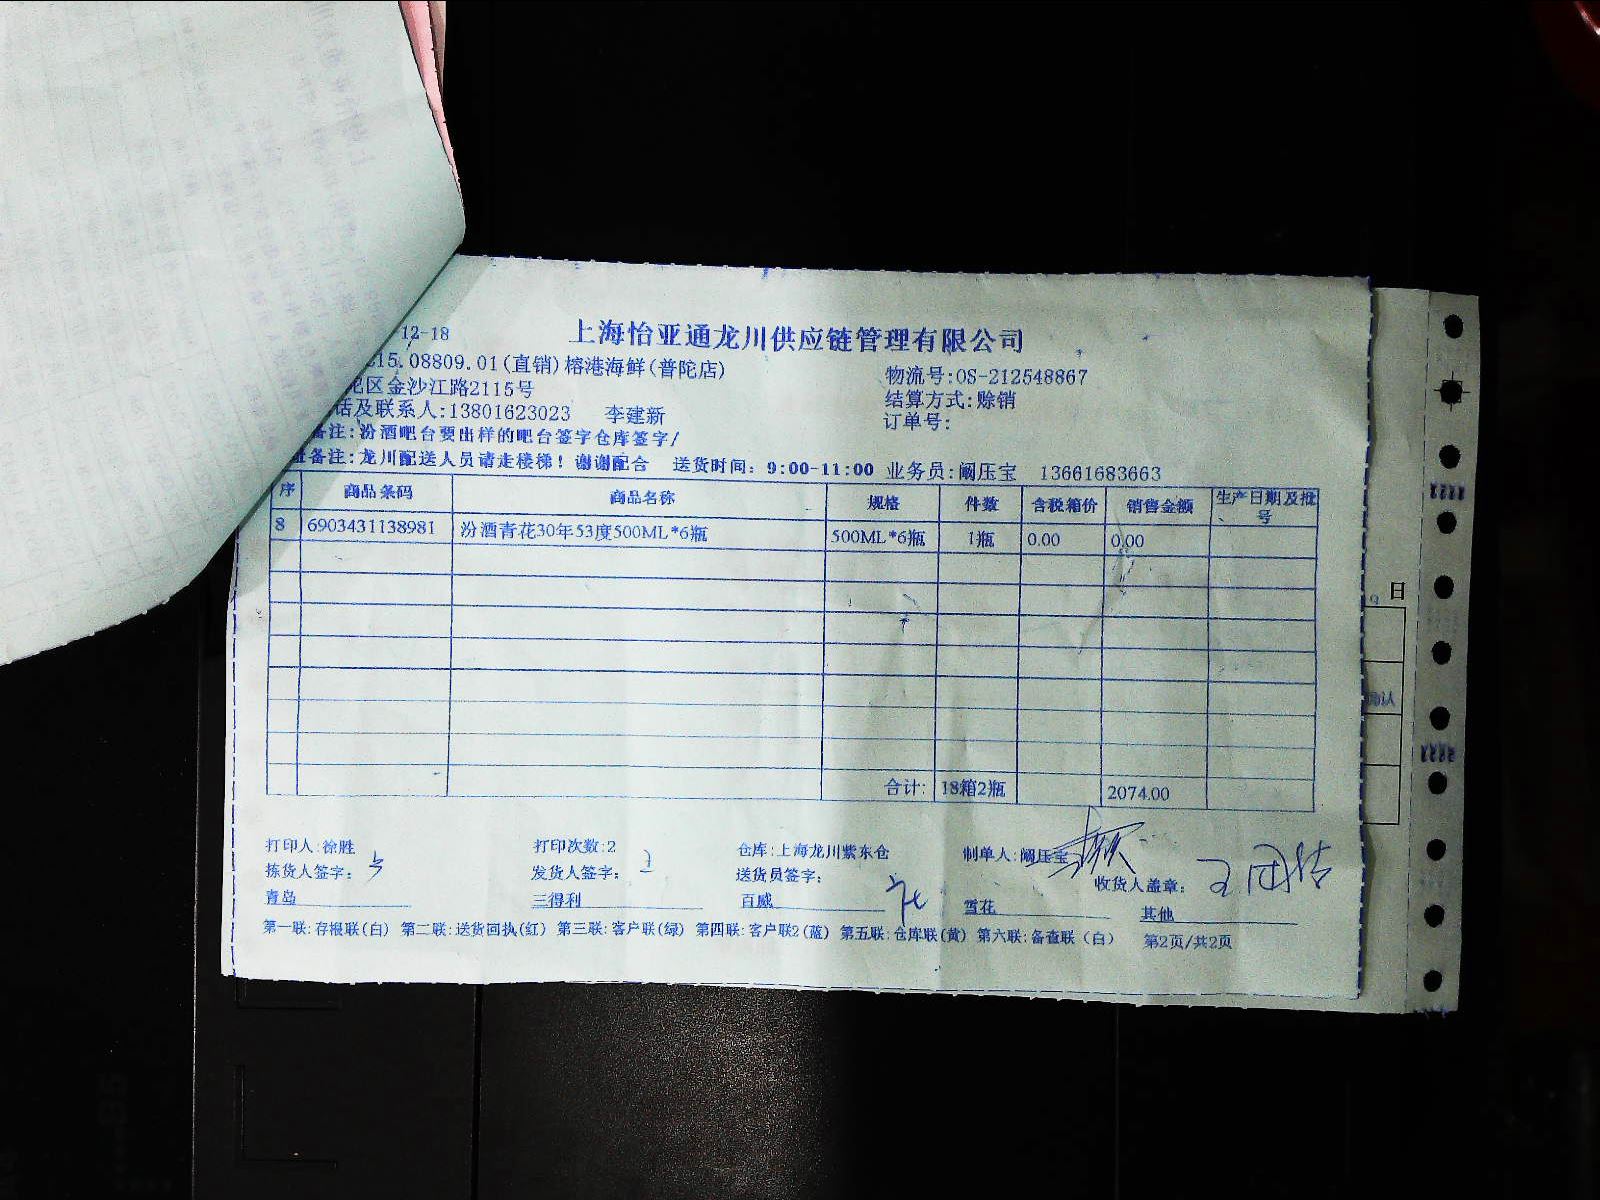 -12-18
上海怡亚通龙川供应链管理有限公司
15.08809.01(直销)榕港海鲜(普陀店)
物流号:OS-212548867
陀区金沙江路2115号
结算方式:赊销
话及联系人:13801623023 李建新
订单号:
备注:汾酒吧台要出样的吧台签字仓库签字/
备注:龙川配送人员请走楼梯！谢谢配合 送货时间：9:00-11:00 业务员:阚压宝 13661683663
序 商品条码 商品名称 规格 件数 含税箱价 销售金额 生产日期及批号
8 6903431138981 汾酒青花30年53度500ML*6瓶 500ML*6瓶 1瓶 0.00 0.00
合计: 18箱2瓶 2074.00
打印人:徐胜 打印次数:2 仓库:上海龙川紫东仓 制单人:阚压宝
拣货人签字： 发货人签字： 送货员签字： 收货人盖章：
青岛 三得利 百威 雪花 其他
第一联:存根联(白) 第二联:送货回执(红) 第三联:客户联(绿) 第四联:客户联2(蓝) 第五联:仓库联(黄) 第六联:备查联（白） 第2页/共2页
日